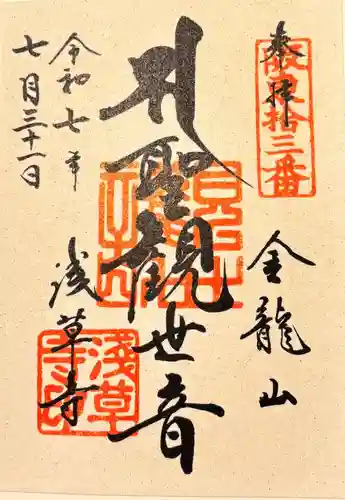 奉拝
坂東拾三番
金龍山
聖観世音
浅草寺
令和七年
七月三十一日
浅草